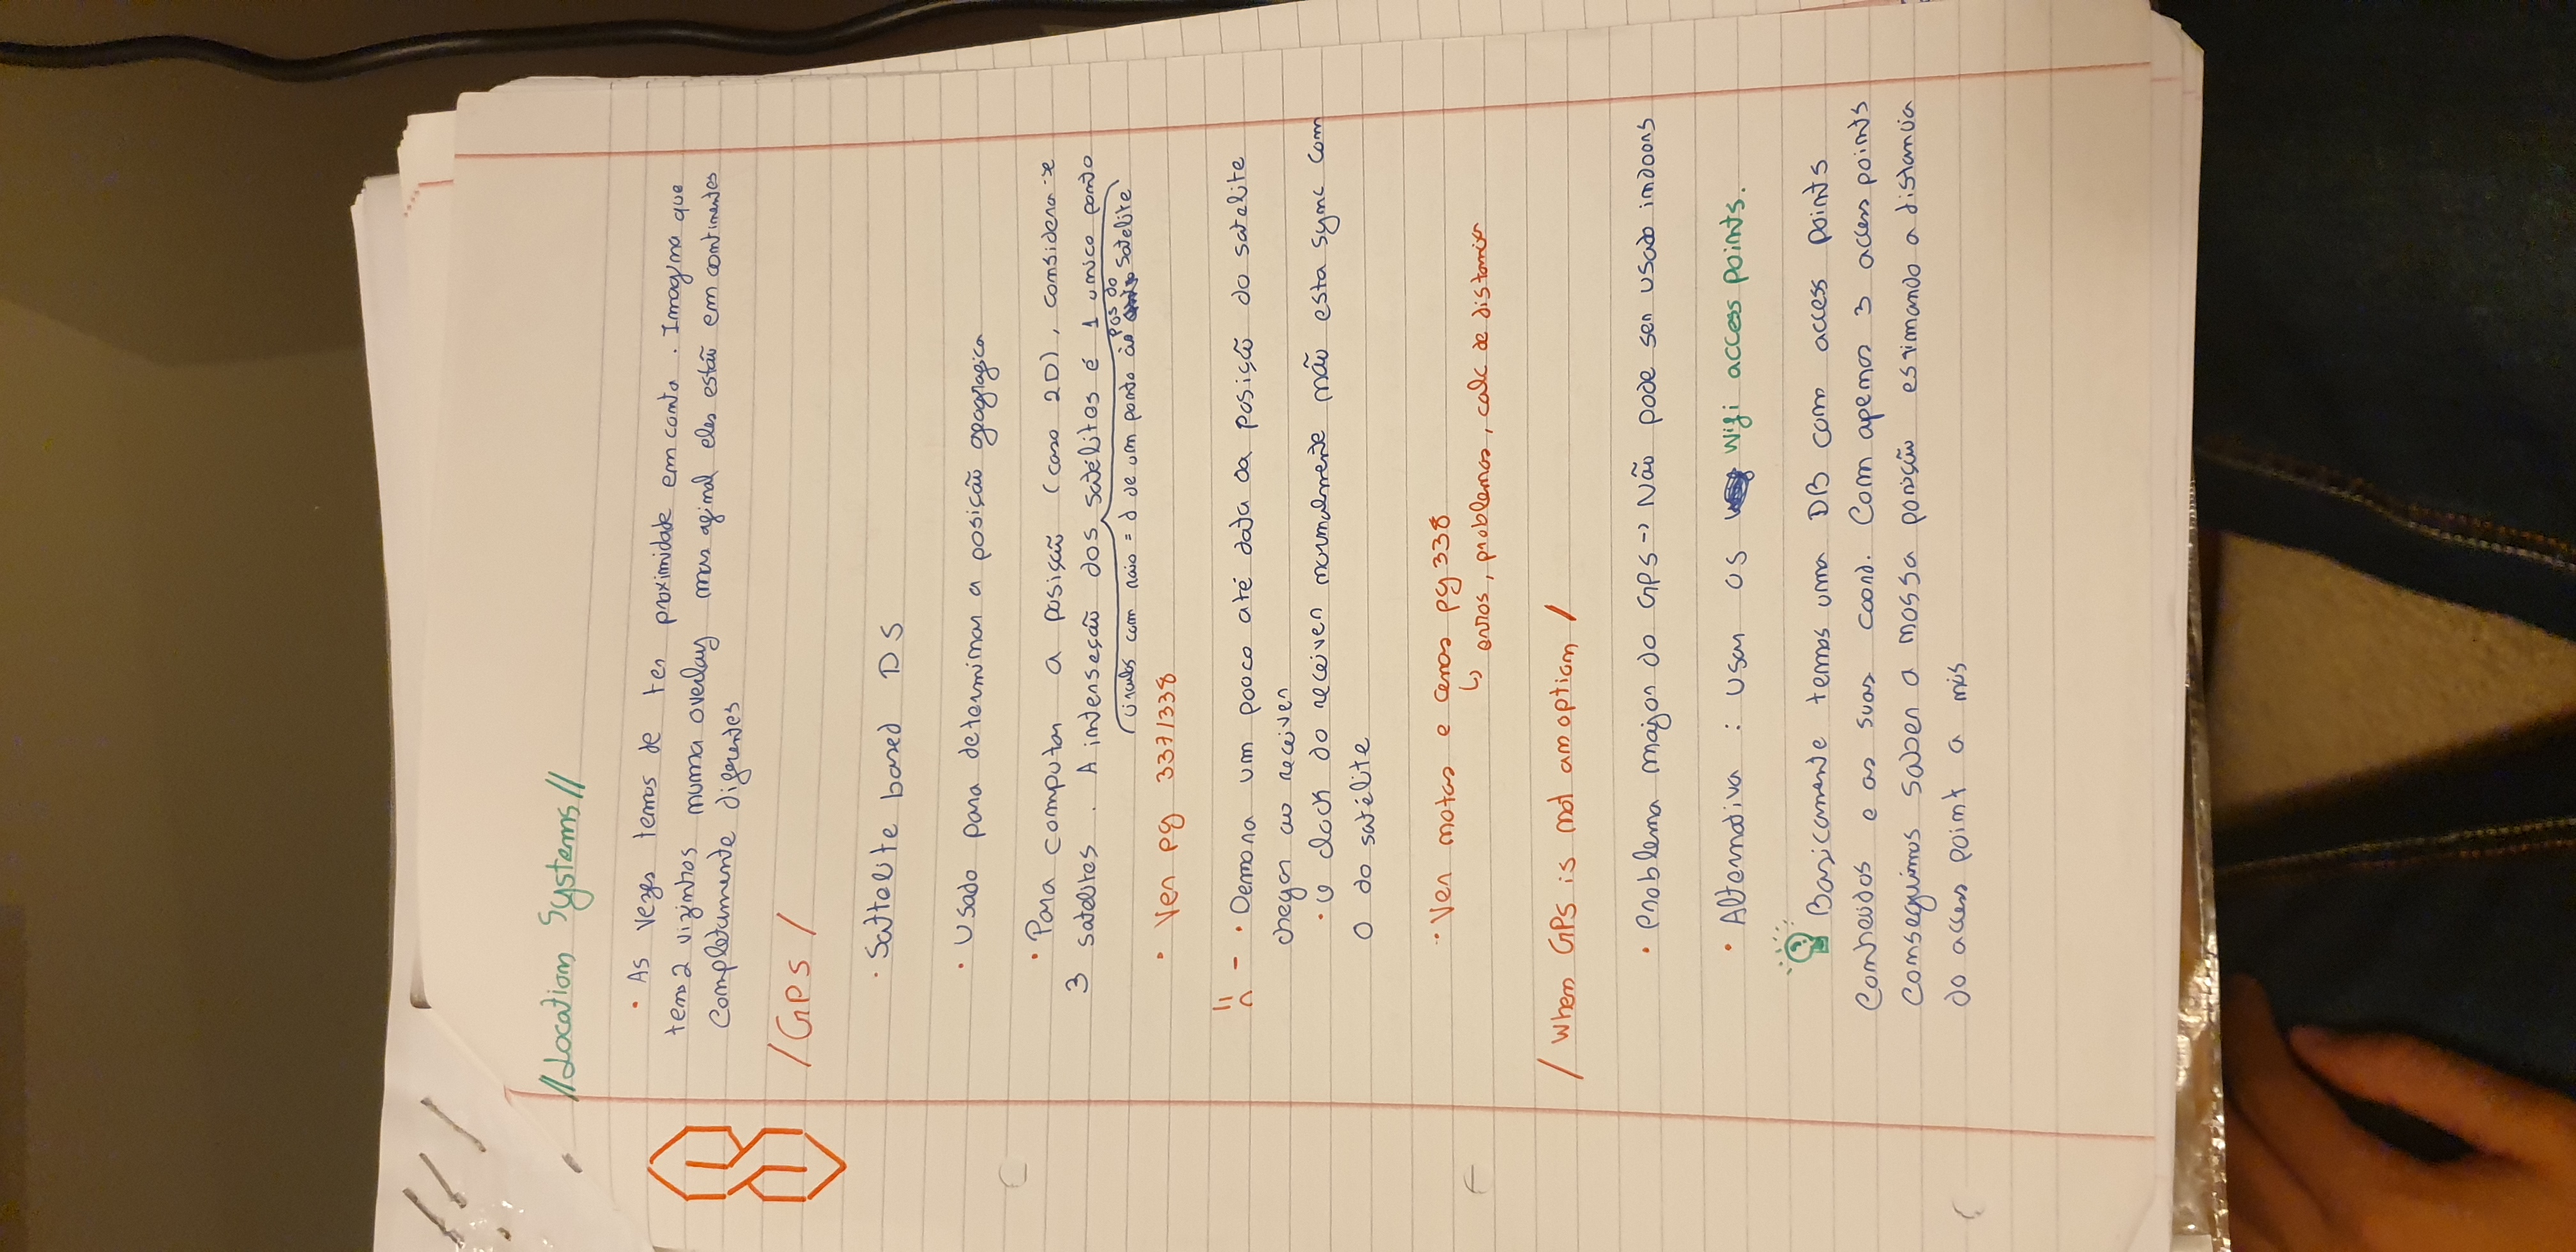 //Location Systems//
• As vezes temos de ter proximidade em conta. Imagina que
tens 2 vizinhos numa overlay mas afinal eles estão em continentes
completamente diferentes
/GPS/
• Sattelite based DS
• Usado para determinar a posição geografica
• Para computar a posição (caso 2D), considera-se
3 satelites. A interseção dos satélites é 1 unico ponto
circulos com raio = d de um ponto às pos do satelite
• Ver pg 337/338
- • Demora um pouco até data da posição do satelite
chegar ao receiver
• O clock do receiver normalmente não esta sync com
o do satélite
• Ver notas e cenas pg 338
↳ erros, problemas, calc de distancia
/When GPS is not an option/
• Problema major do GPS -> Não pode ser usado indoors
• Alternativa : Usar os Wifi access points.
Basicamente temos uma DB com access points
conhecidos e as suas coord. Com apenas 3 access points
conseguimos saber a nossa posição estimando a distancia
do access point a nós